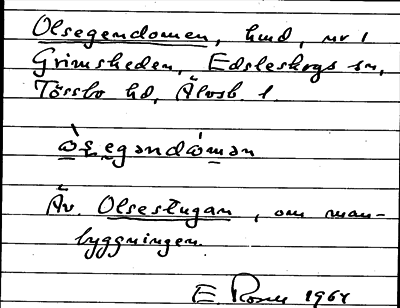 Olsegendomen, hmd, nr 1
Grimsheden, Edsleskogs sn,
Tössbo hd, Älvsb. l.
ὼṣegəndώmən
Äv. Olsestugan, om man-
byggningen.
E. 1964